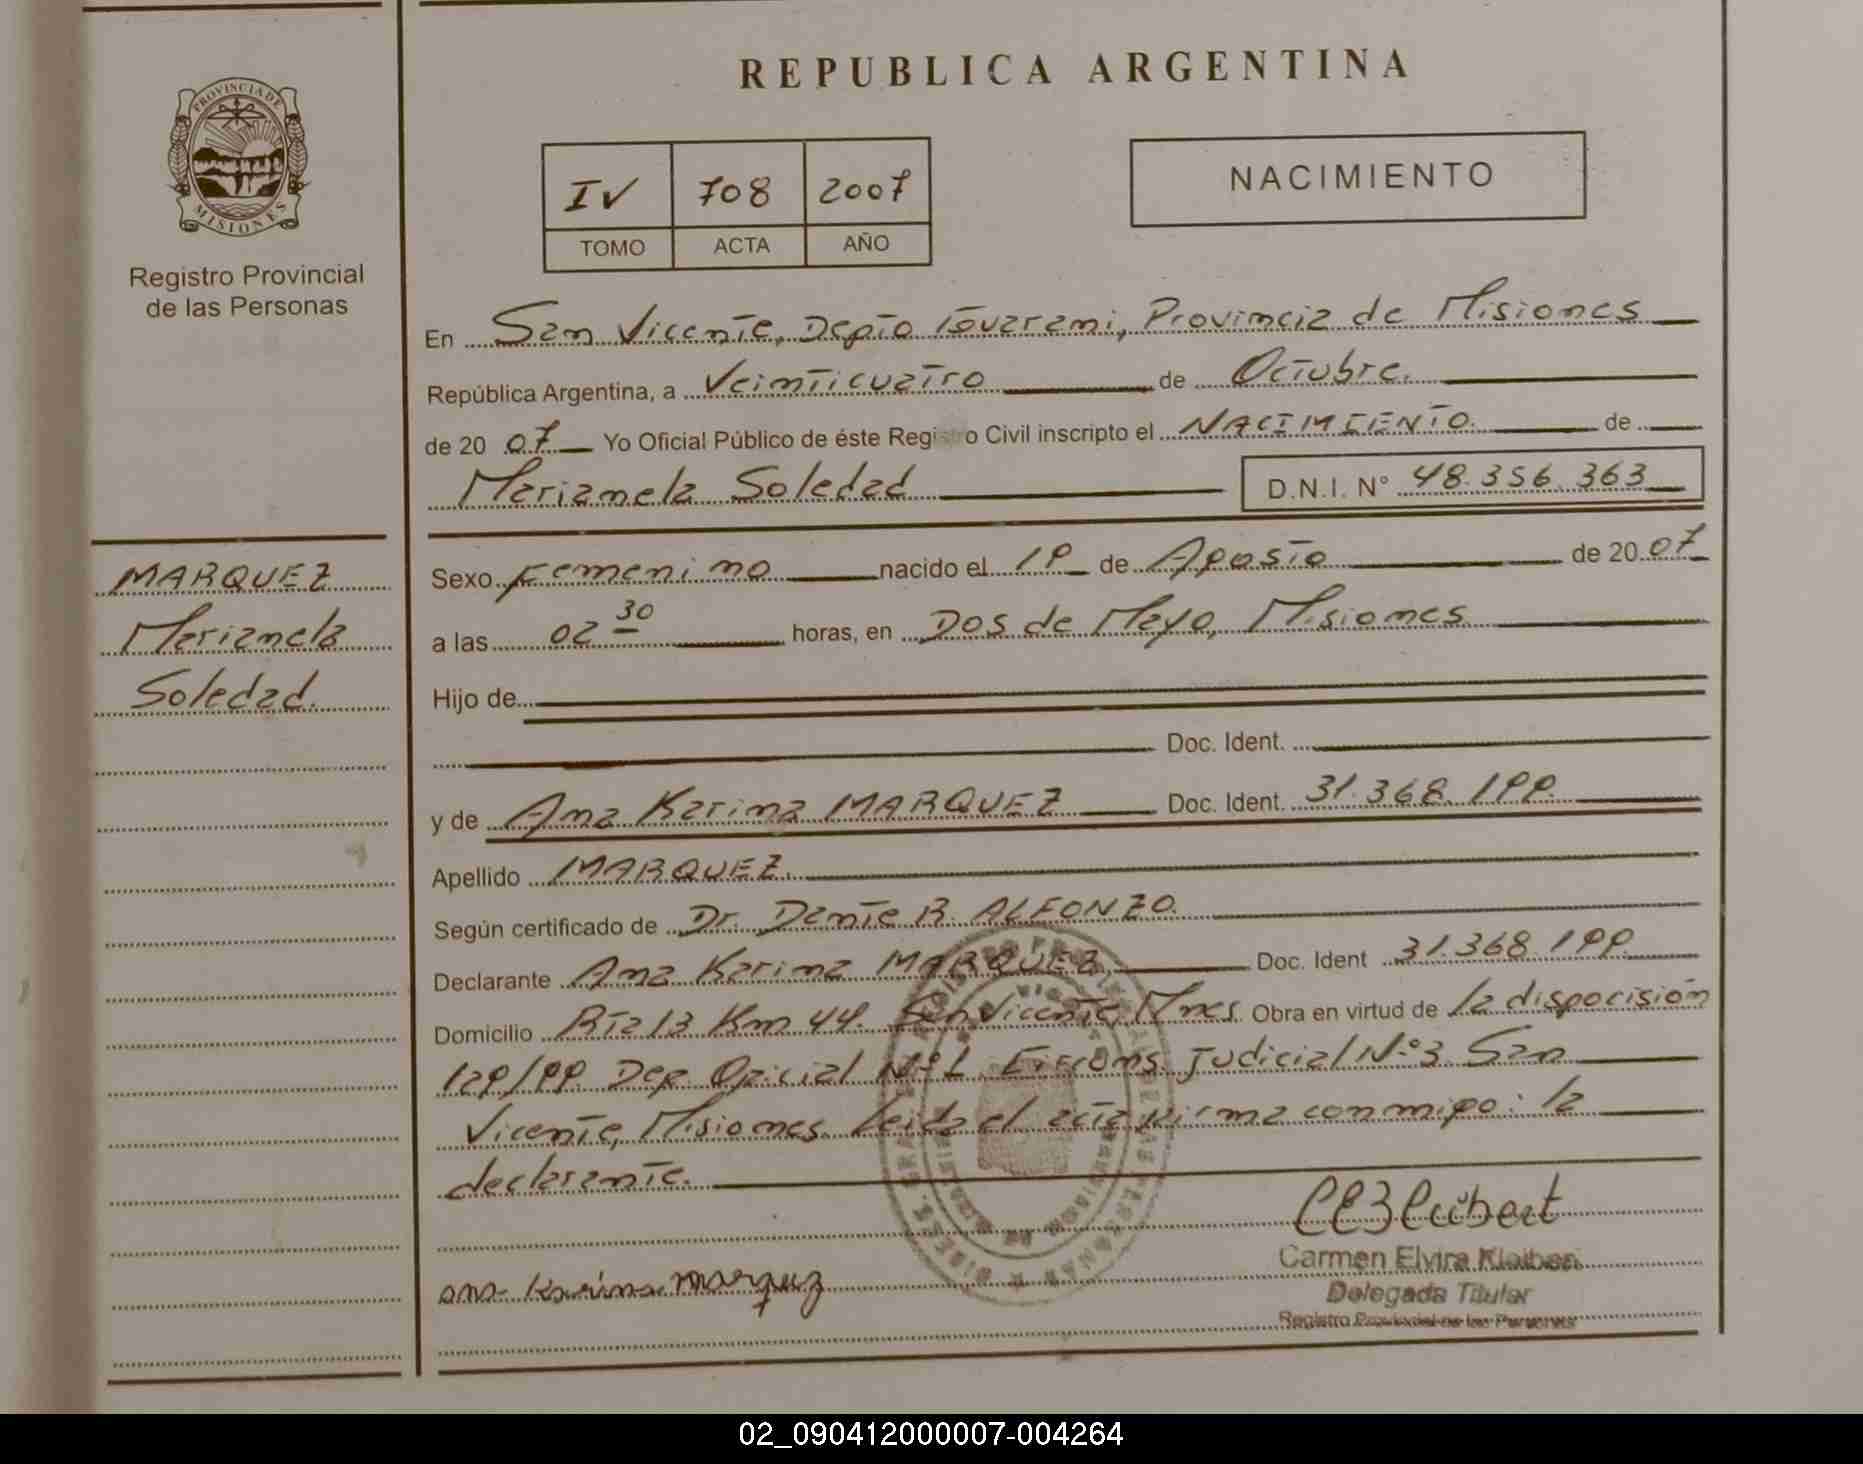 REPUBLICA ARGENTINA
PROVINCIA DE
MISIONES
Registro Provincial
de las Personas
IV 708 2007
TOMO ACTA AÑO
NACIMIENTO
En San Vicente, Depto Guarani, Provincia de Misiones
República Argentina, a Veinticuatro de Octubre.
de 20 07 Yo Oficial Público de éste Registro Civil inscripto el NACIMIENTO. de
Marianela Soledad D.N.I. N° 48.356.363
MARQUEZ
Marianela
Soledad.
Sexo Femenino nacido el 19 de Agosto de 20 07
a las 02 30 horas, en Dos de Mayo, Misiones
Hijo de
Doc. Ident.
y de Ana Karina MARQUEZ Doc. Ident. 31.368.199.
Apellido MARQUEZ.
Según certificado de Dr. Dante R. ALFONZO.
Declarante Ana Karina MARQUEZ, Doc. Ident 31.368.199.
Domicilio Rta 13 Km 44. San Vicente, Mnes. Obra en virtud de la dispocisión
129/99. Dep. Oficial N°1 Circons. Judicial N°3 San
Vicente, Misiones. Leida el acta firma conmigo: la
declarante.
ana Karina marquez
Carmen Elvira Kleibert
Delegada Titular
Registro Provincial de las Personas
02_090412000007-004264